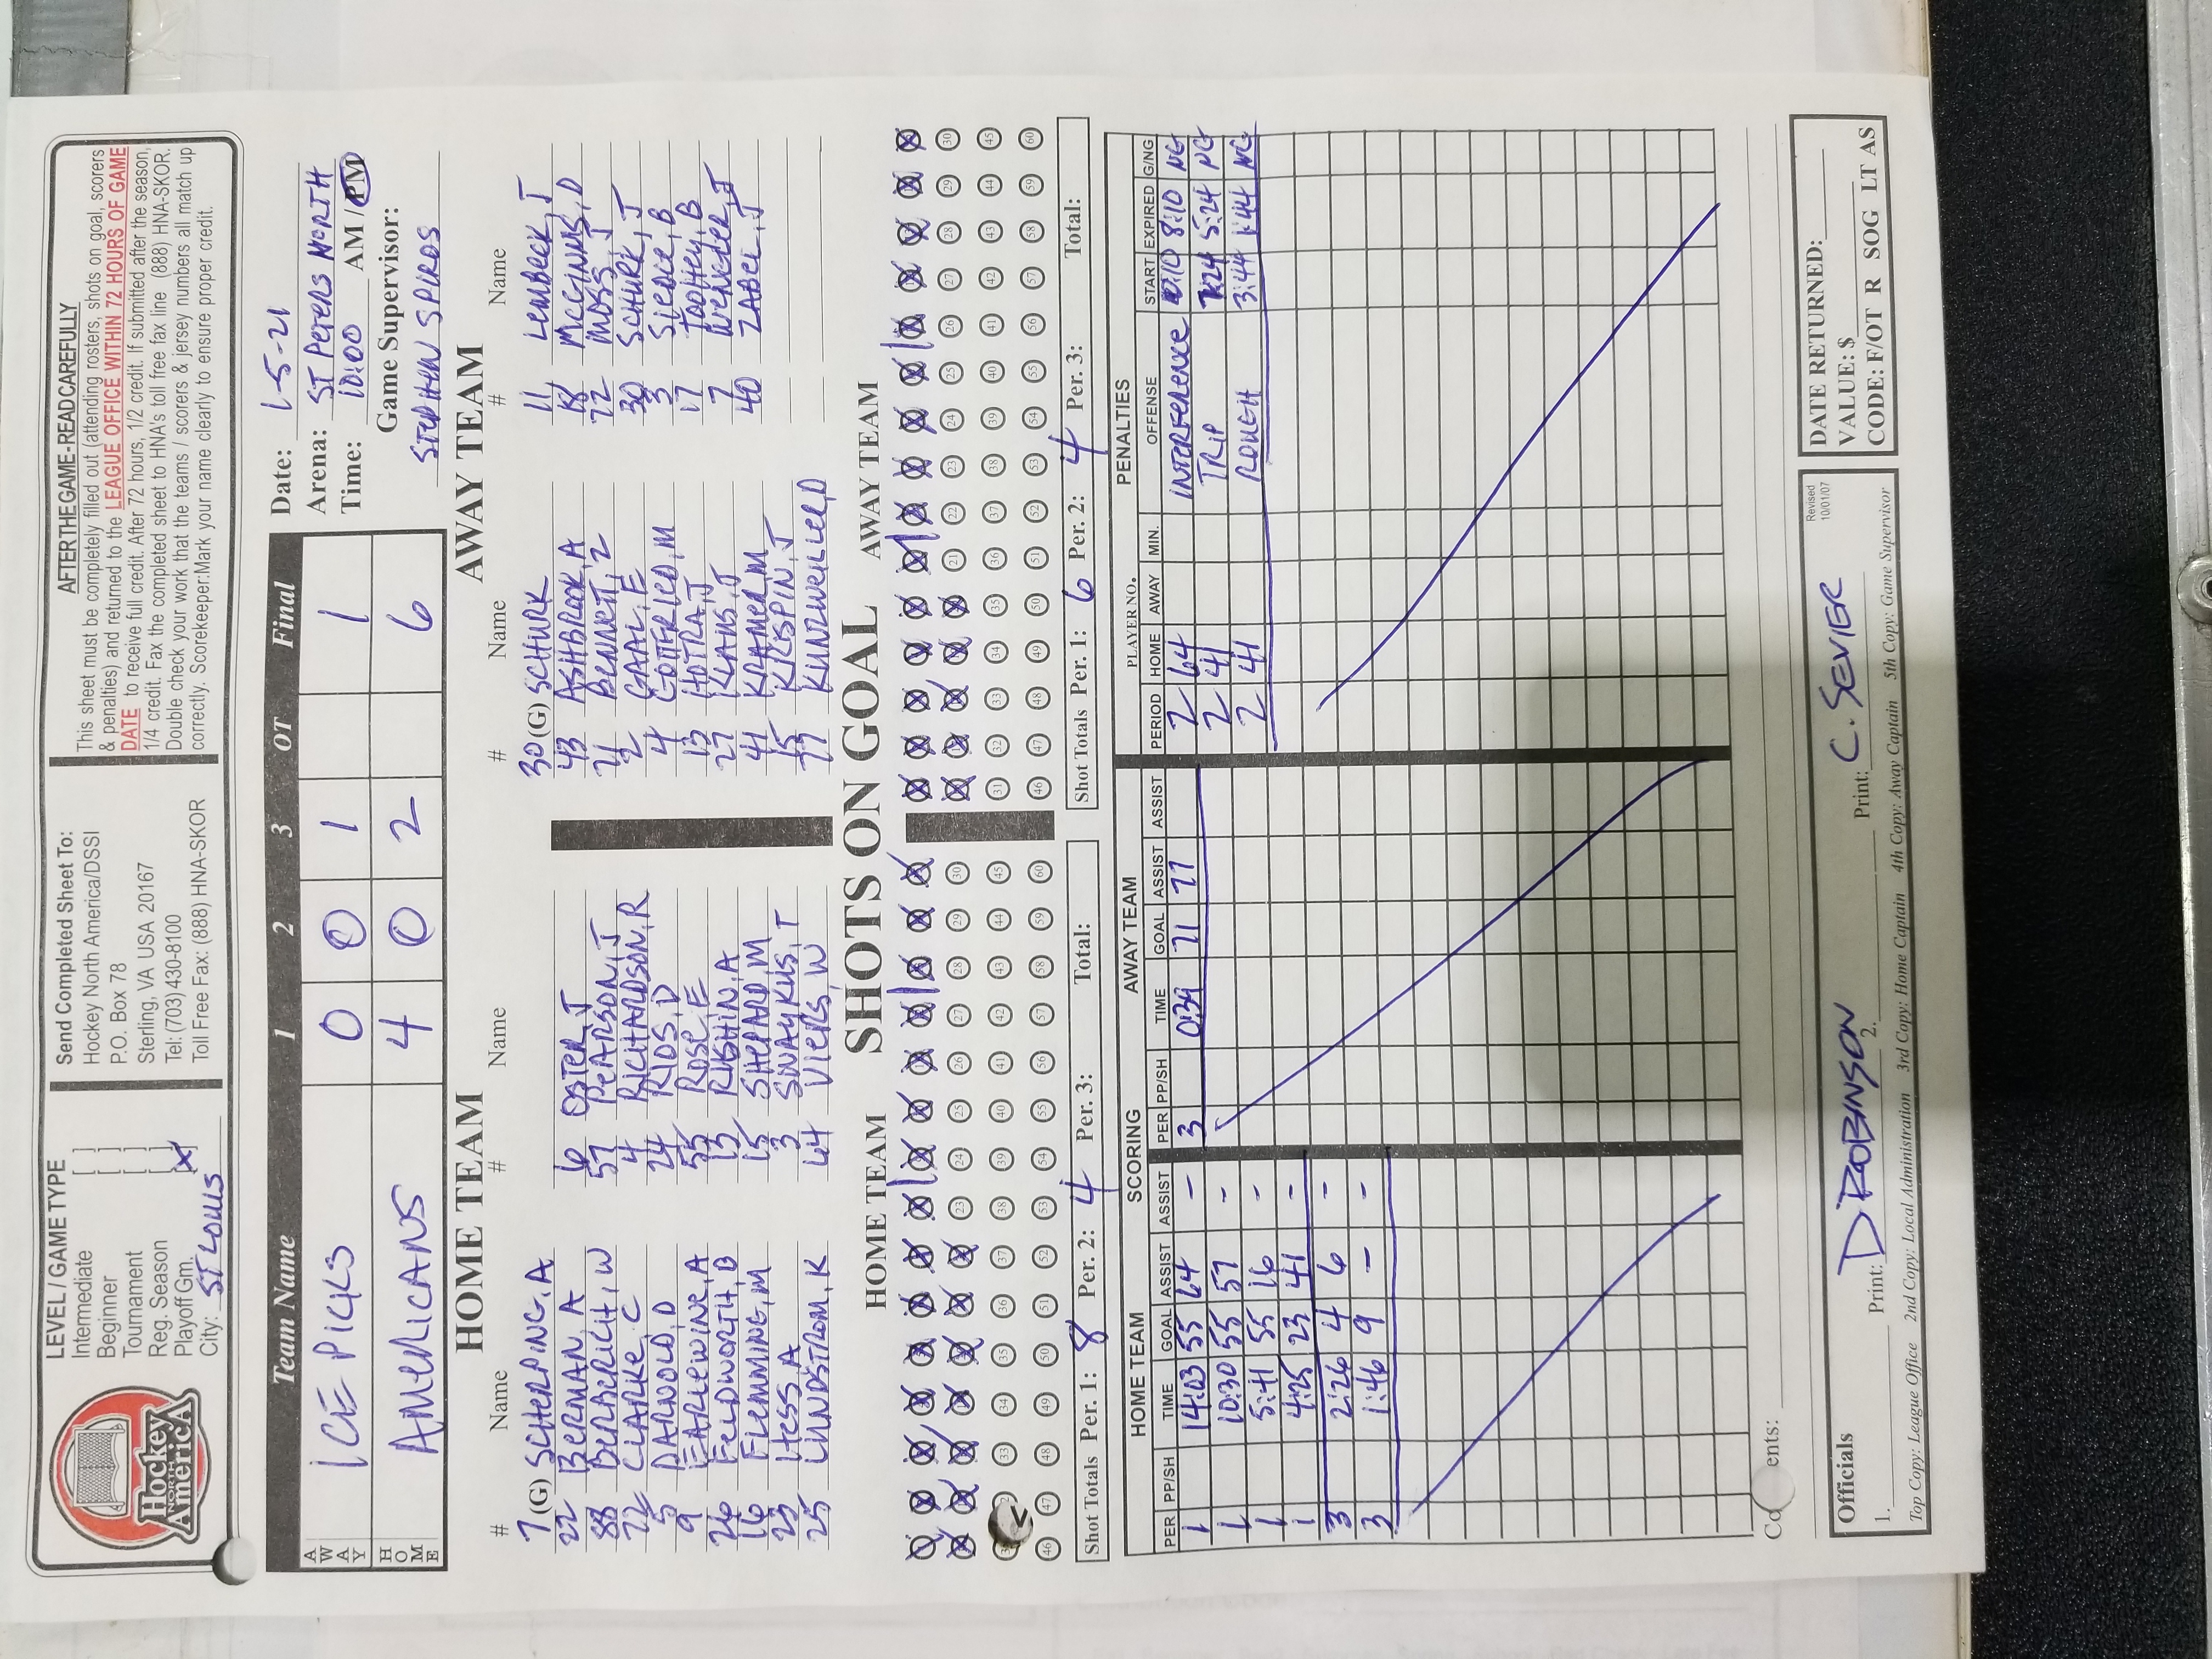 Hockey
NORTH
America
LEVEL / GAME TYPE
Intermediate [ ]
Beginner [ ]
Tournament [ ]
Reg. Season [ ]
Playoff Gm. [X]
City: ST LOUIS
Send Completed Sheet To:
Hockey North America/DSSI
P.O. Box 78
Sterling, VA USA 20167
Tel: (703) 430-8100
Toll Free Fax: (888) HNA-SKOR
AFTER THE GAME - READ CAREFULLY
This sheet must be completely filled out (attending rosters, shots on goal, scorers
& penalties) and returned to the LEAGUE OFFICE WITHIN 72 HOURS OF GAME
DATE to receive full credit. After 72 hours, 1/2 credit. If submitted after the season,
1/4 credit. Fax the completed sheet to HNA's toll free fax line (888) HNA-SKOR.
Double check your work that the teams / scorers & jersey numbers all match up
correctly. Scorekeeper: Mark your name clearly to ensure proper credit.
Team Name 1 2 3 OT Final
AWAY ICE PICKS 0 0 1 1
HOME AMERICANS 4 0 2 6
Date: 1-5-21
Arena: ST PETERS NORTH
Time: 10:00 AM / PM
Game Supervisor:
STEPHEN SPIROS
HOME TEAM
# Name # Name
7 (G) SCHERPING, A
22 BERMAN, A 6 OSTER, J
88 BURBERICH, W 57 PEARSON, J
72 CLARKE, C 4 RICHARDSON, R
5 DARNOLD, D 24 RIOS, D
9 EARLEWINE, A 55 ROSE, E
26 FELDWORTH, B 13 RUSHIN, A
16 FLEMMING, M 15 SHEPARD, M
23 HESS, A 3 SWAYKUS, T
25 LUNDSTROM, K 64 VIERS, W
AWAY TEAM
# Name # Name
30 (G) SCHURK 11 LEMBECK, J
43 ASHBROOK, A 18 MCGINNIS, D
71 BENNETT, Z 72 MOSS, J
2 GAAL, E 30 SCHURK, J
4 GOTTFRIED, M 3 SIENCE, B
13 HOTRA, J 17 TOOHEY, B
27 KLAHS, J 7 WENGLER, J
41 KRAMER, M 40 ZABEL, J
15 KRISPIN, J
77 KUNZWEILER, D
SHOTS ON GOAL
HOME TEAM AWAY TEAM
23 24 25 26 27 28 29 30
33 34 35 36 37 38 39 40 41 42 43 44 45
46 47 48 49 50 51 52 53 54 55 56 57 58 59 60
21 22 23 24 25 26 27 28 29 30
31 32 33 34 35 36 37 38 39 40 41 42 43 44 45
46 47 48 49 50 51 52 53 54 55 56 57 58 59 60
Shot Totals Per. 1: 8 Per. 2: 4 Per. 3: Total:
Shot Totals Per. 1: 6 Per. 2: 4 Per. 3: Total:
SCORING
HOME TEAM
PER PP/SH TIME GOAL ASSIST ASSIST
1 14:03 55 64 -
1 10:30 55 57 -
1 5:41 55 16 -
1 4:25 23 41 -
3 2:26 4 6 -
3 1:46 9 - -
AWAY TEAM
PER PP/SH TIME GOAL ASSIST ASSIST
3 0:39 71 77
PENALTIES
PLAYER NO.
PERIOD HOME AWAY MIN. OFFENSE START EXPIRED G/NG
2 64 INTERFERENCE 8:10 NG
2 41 TRIP 7:24 5:24 NG
2 41 ROUGH 3:44 1:44 NG
ents:
Officials
1. Print: D ROBINSON 2. Print: C. SEVIER
Revised
10/01/07
DATE RETURNED:
VALUE: $
CODE: F/OT R SOG LT AS
Top Copy: League Office 2nd Copy: Local Administration 3rd Copy: Home Captain 4th Copy: Away Captain 5th Copy: Game Supervisor